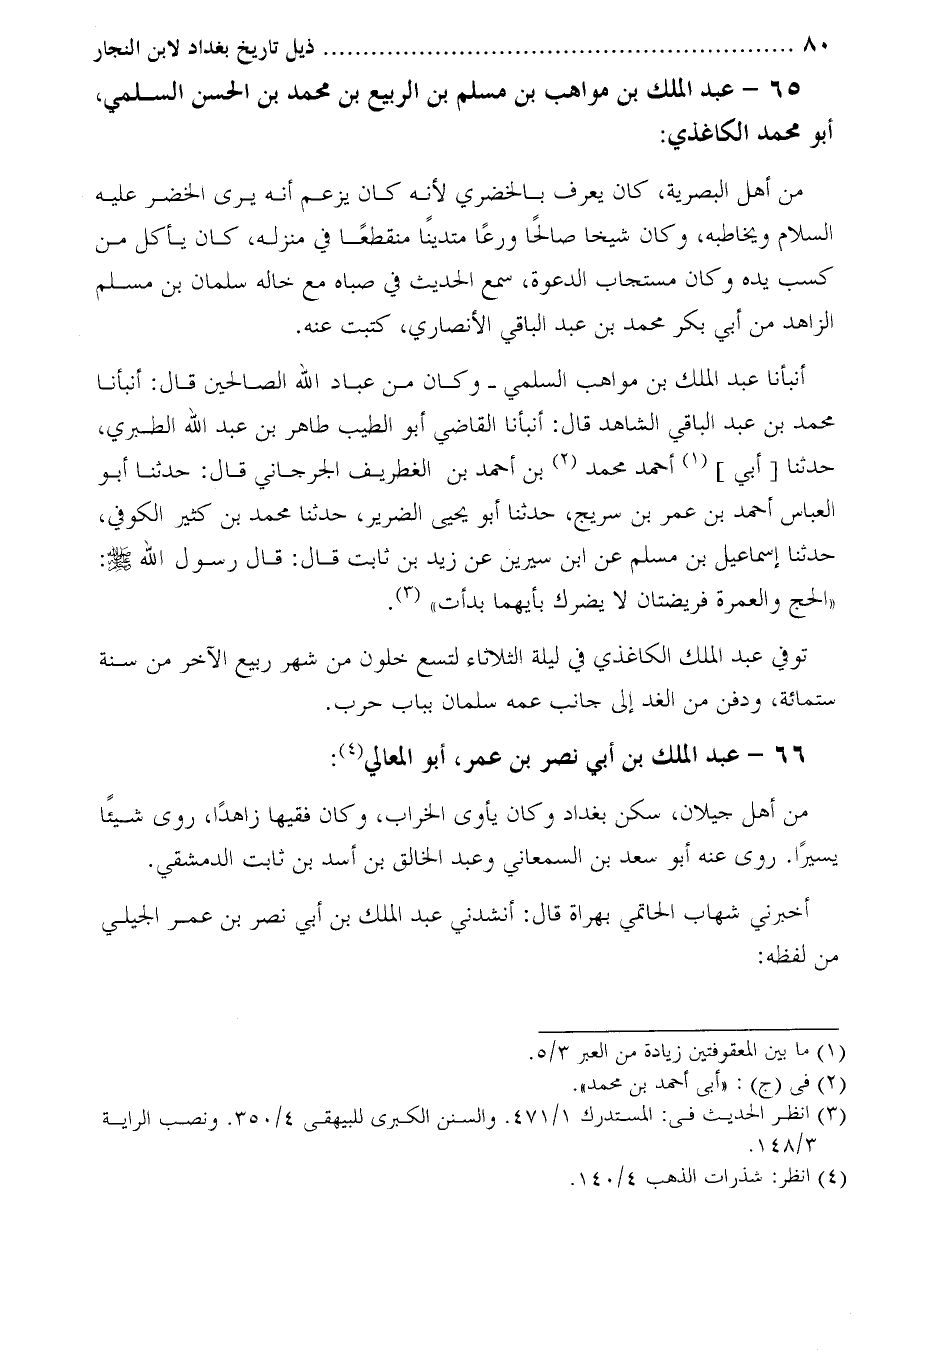 ٨٠ ........................................................ ذيل تاريخ بغداد لابن النجار
٦٥ – عبد الملك بن مواهب بن مسلم بن الربيع بن محمد بن الحسن السلمي،
أبو محمد الكاغذي:
من أهل البصرية، كان يعرف بالخضري لأنه كان يزعم أنه يرى الخضر عليه
السلام ويخاطبه، وكان شيخا صالحًا ورعًا متدينًا منقطعًا في منزله، كان يأكل من
كسب يده وكان مستجاب الدعوة، سمع الحديث في صباه مع خاله سلمان بن مسلم
الزاهد من أبي بكر محمد بن عبد الباقي الأنصاري، كتبت عنه.
أنبأنا عبد الملك بن مواهب السلمي ـ وكان من عباد الله الصالحين قال: أنبأنا
محمد بن عبد الباقي الشاهد قال: أنبأنا القاضي أبو الطيب طاهر بن عبد الله الطبري،
حدثنا [ أبي ] (١) أحمد محمد (٢) بن أحمد بن الغطريف الجرجاني قال: حدثنا أبو
العباس أحمد بن عمر بن سريج، حدثنا أبو يحيى الضرير، حدثنا محمد بن كثير الكوفي،
حدثنا إسماعيل بن مسلم عن ابن سيرين عن زيد بن ثابت قال: قال رسول الله ﷺ:
«الحج والعمرة فريضتان لا يضرك بأيهما بدأت» (٣).
توفي عبد الملك الكاغذي في ليلة الثلاثاء لتسع خلون من شهر ربيع الآخر من سنة
ستمائة، ودفن من الغد إلى جانب عمه سلمان بباب حرب.
٦٦ – عبد الملك بن أبي نصر بن عمر، أبو المعالي(٤):
من أهل جيلان، سكن بغداد وكان يأوى الخراب، وكان فقيها زاهدًا، روى شيئًا
يسيرًا. روى عنه أبو سعد بن السمعاني وعبد الخالق بن أسد بن ثابت الدمشقي.
أخبرني شهاب الحاتمي بهراة قال: أنشدني عبد الملك بن أبي نصر بن عمر الجيلي
من لفظه:
(١) ما بين المعقوفتين زيادة من العبر ٥/٣.
(٢) فى (ج) : «أبى أحمد بن محمد».
(٣) انظر الحديث فى: المستدرك ٤٧١/١. والسنن الكبرى للبيهقى ٣٥٠/٤. ونصب الراية
١٤٨/٣.
(٤) انظر: شذرات الذهب ١٤٠/٤.